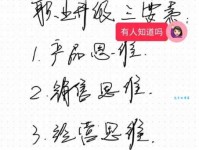 职业升级三要素:
有人知道吗
1.产品思维.
2.销售思维.
3.经营思维.